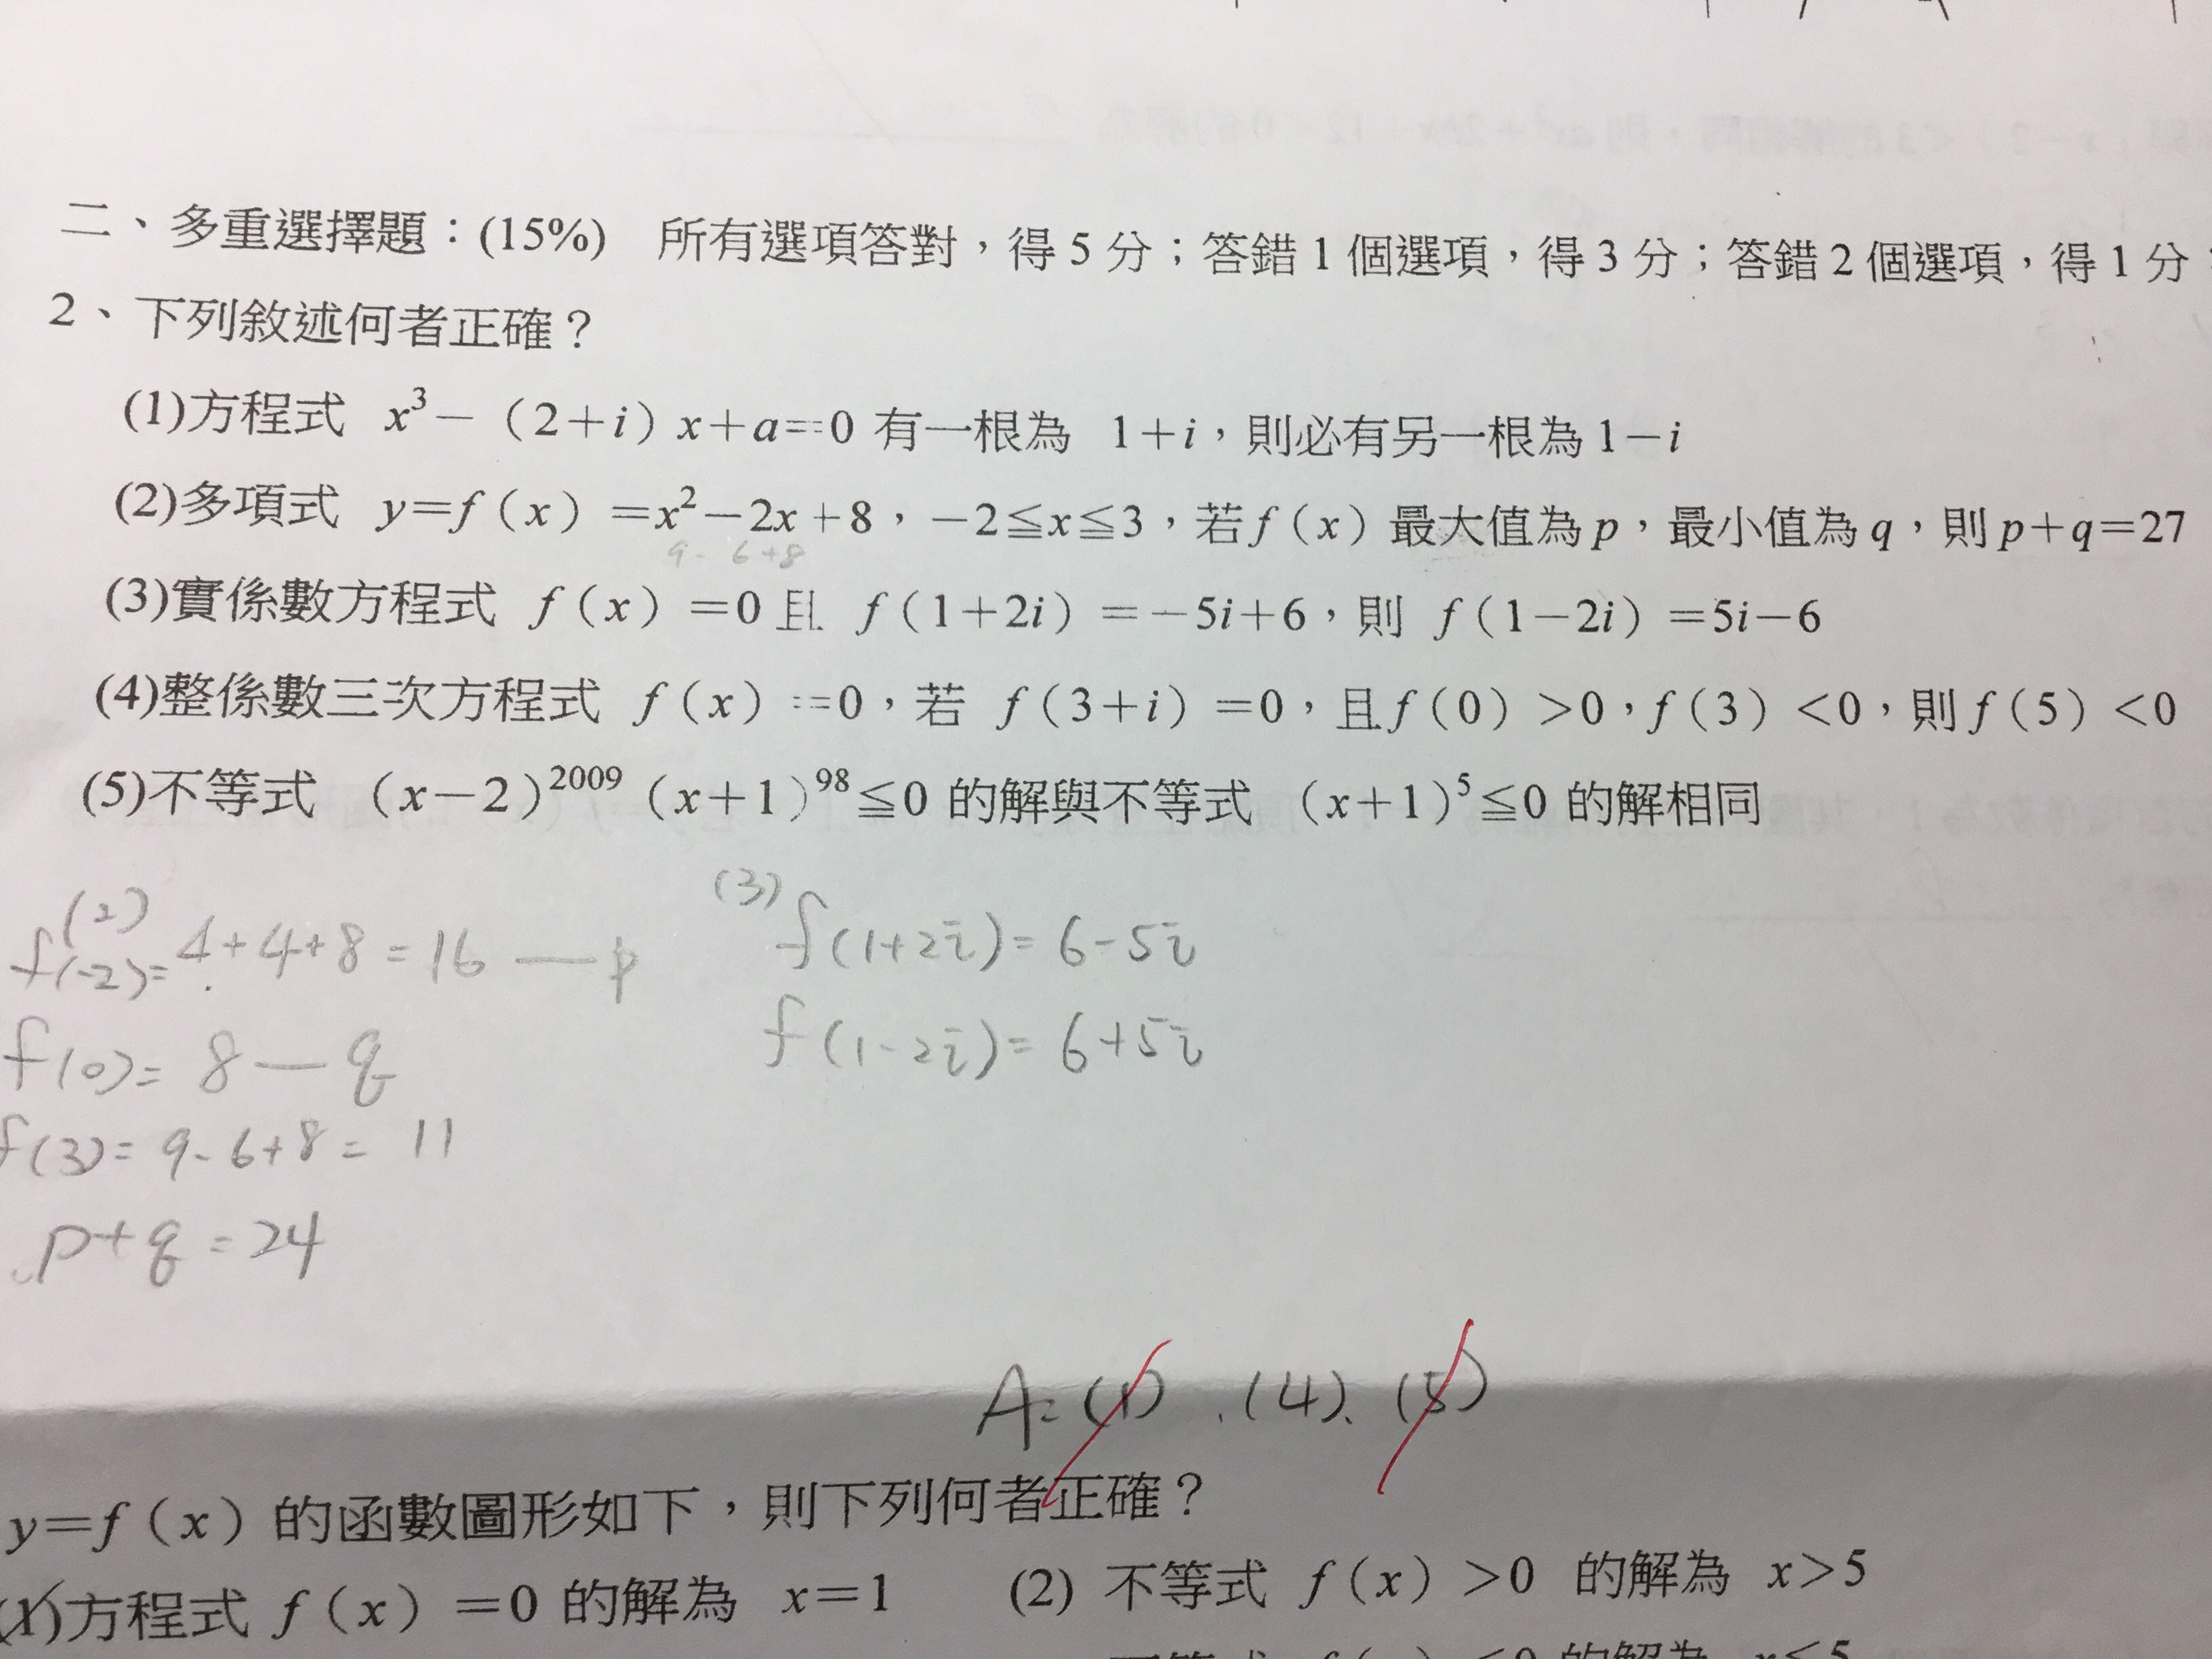 二、多重選擇題：(15%)　所有選項答對，得5分；答錯1個選項，得3分；答錯2個選項，得1分
2、下列敘述何者正確？
(1)方程式 x³－（2＋i）x＋a＝0 有一根為 1＋i，則必有另一根為1－i
(2)多項式 y＝f（x）＝x²－2x＋8，－2≦x≦3，若f（x）最大值為p，最小值為q，則p＋q＝27
9-6+8
(3)實係數方程式 f（x）＝0且 f（1＋2i）＝－5i＋6，則 f（1－2i）＝5i－6
(4)整係數三次方程式 f（x）＝0，若 f（3＋i）＝0，且f（0）＞0，f（3）＜0，則f（5）＜0
(5)不等式 （x－2）²⁰⁰⁹（x＋1）⁹⁸≦0 的解與不等式 （x＋1）⁵≦0 的解相同
(2)
f(-2)=4+4+8=16 — p
f(0)=8 — q
f(3)=9-6+8=11
p+q=24
(3)
f(1+2i)=6-5i
f(1-2i)=6+5i
A=(1)、(4)、(5)
y＝f（x）的函數圖形如下，則下列何者正確？
(1)方程式 f（x）＝0 的解為 x＝1 (2) 不等式 f（x）＞0 的解為 x＞5